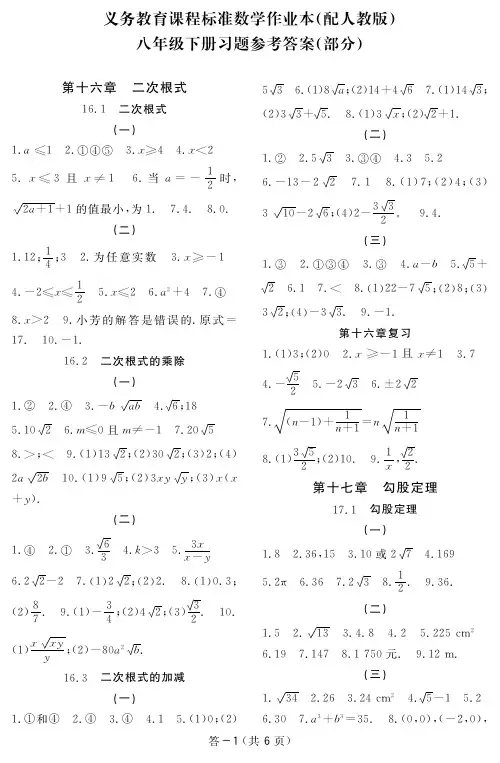 义务教育课程标准数学作业本(配人教版)
八年级下册习题参考答案(部分)
第十六章 二次根式
16.1 二次根式
(一)
1.a≤1 2.①④⑤ 3.x≥4 4.x<2
5. x≤3 且 x≠1 6. 当 a=-1/2 时,
√(2a+1)+1的值最小,为1. 7.4. 8.0.
(二)
1.12;1/4;3 2.为任意实数 3.x≥-1
4.-2≤x≤1/2 5.x≤2 6.a²+4 7.④
8.x>2 9.小芳的解答是错误的.原式=
17. 10.-1.
16.2 二次根式的乘除
(一)
1.② 2.④ 3.-b√ab 4.√6;18
5.10√2 6.m≤0且m≠-1 7.20√5
8.>;< 9.(1)13√2;(2)30√2;(3)2;(4)
2a√2b 10.(1)9√5;(2)3xy√y;(3)x(x
+y).
(二)
1.④ 2.① 3.√6/3 4.k>3 5.3x/(x-y)
6.2√2-2 7.(1)2√2;(2)2. 8.(1)0.3;
(2)8/7. 9.(1)-3/4;(2)4√2;(3)√3/2. 10.
(1)x√xy/y;(2)-80a²√b.
16.3 二次根式的加减
(一)
1.①和④ 2.④ 3.④ 4.1 5.(1)0;(2)
5√3 6.(1)8√a;(2)14+4√6 7.(1)14√3;
(2)3√3+√5. 8.(1)3√x;(2)√2+1.
(二)
1.② 2.5√3 3.③④ 4.3 5.2
6.-13-2√2 7.1 8.(1)7;(2)4;(3)
3√10-2√6;(4)2-3√3/2. 9.4.
(三)
1.③ 2.①③④ 3.③ 4.a-b 5.√5+
√2 6.1 7.< 8.(1)22-7√5;(2)8;(3)
3√2;(4)-3√3. 9.-1.
第十六章复习
1.(1)3;(2)0 2.x≥-1且x≠1 3.7
4.-√5/2 5.-2√3 6.±2√2
7.√((n-1)+1/(n+1))=n√(1/(n+1))
8.(1)3√5/2;(2)10. 9.1/x,√2/2.
第十七章 勾股定理
17.1 勾股定理
(一)
1.8 2.36,15 3.10或2√7 4.169
5.2π 6.36 7.2√3 8.1/2. 9.36.
(二)
1.5 2.√13 3.4.8 4.2 5.225 cm²
6.19 7.147 8.1 750元. 9.12 m.
(三)
1.√34 2.26 3.24 cm² 4.√5-1 5.2
6.30 7.a³+b³=35. 8.(0,0),(-2,0),
答-1(共6页)